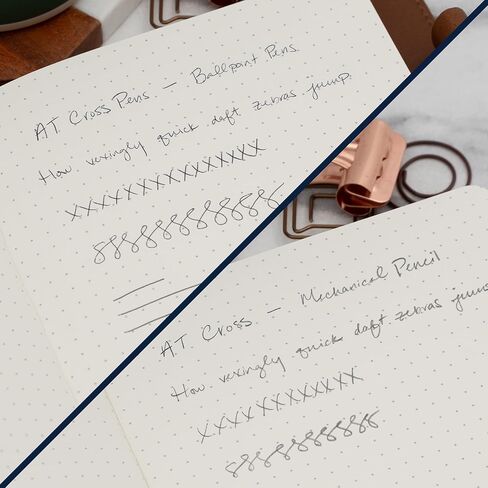 A.T. Cross Pens — Ballpoint Pens
How vexingly quick daft zebras jump.
XXXXXXXXXXXXXXX
888888888888
A.T. Cross — Mechanical Pencil
How vexingly quick daft zebras jump
XXXX XXXXXXXXX
88888888888